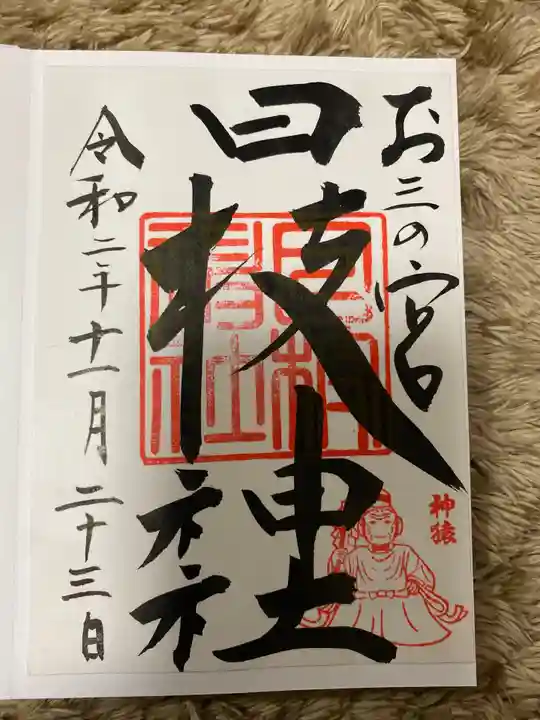 お三の宮
日枝神社
神猿
令和二年十一月二十三日